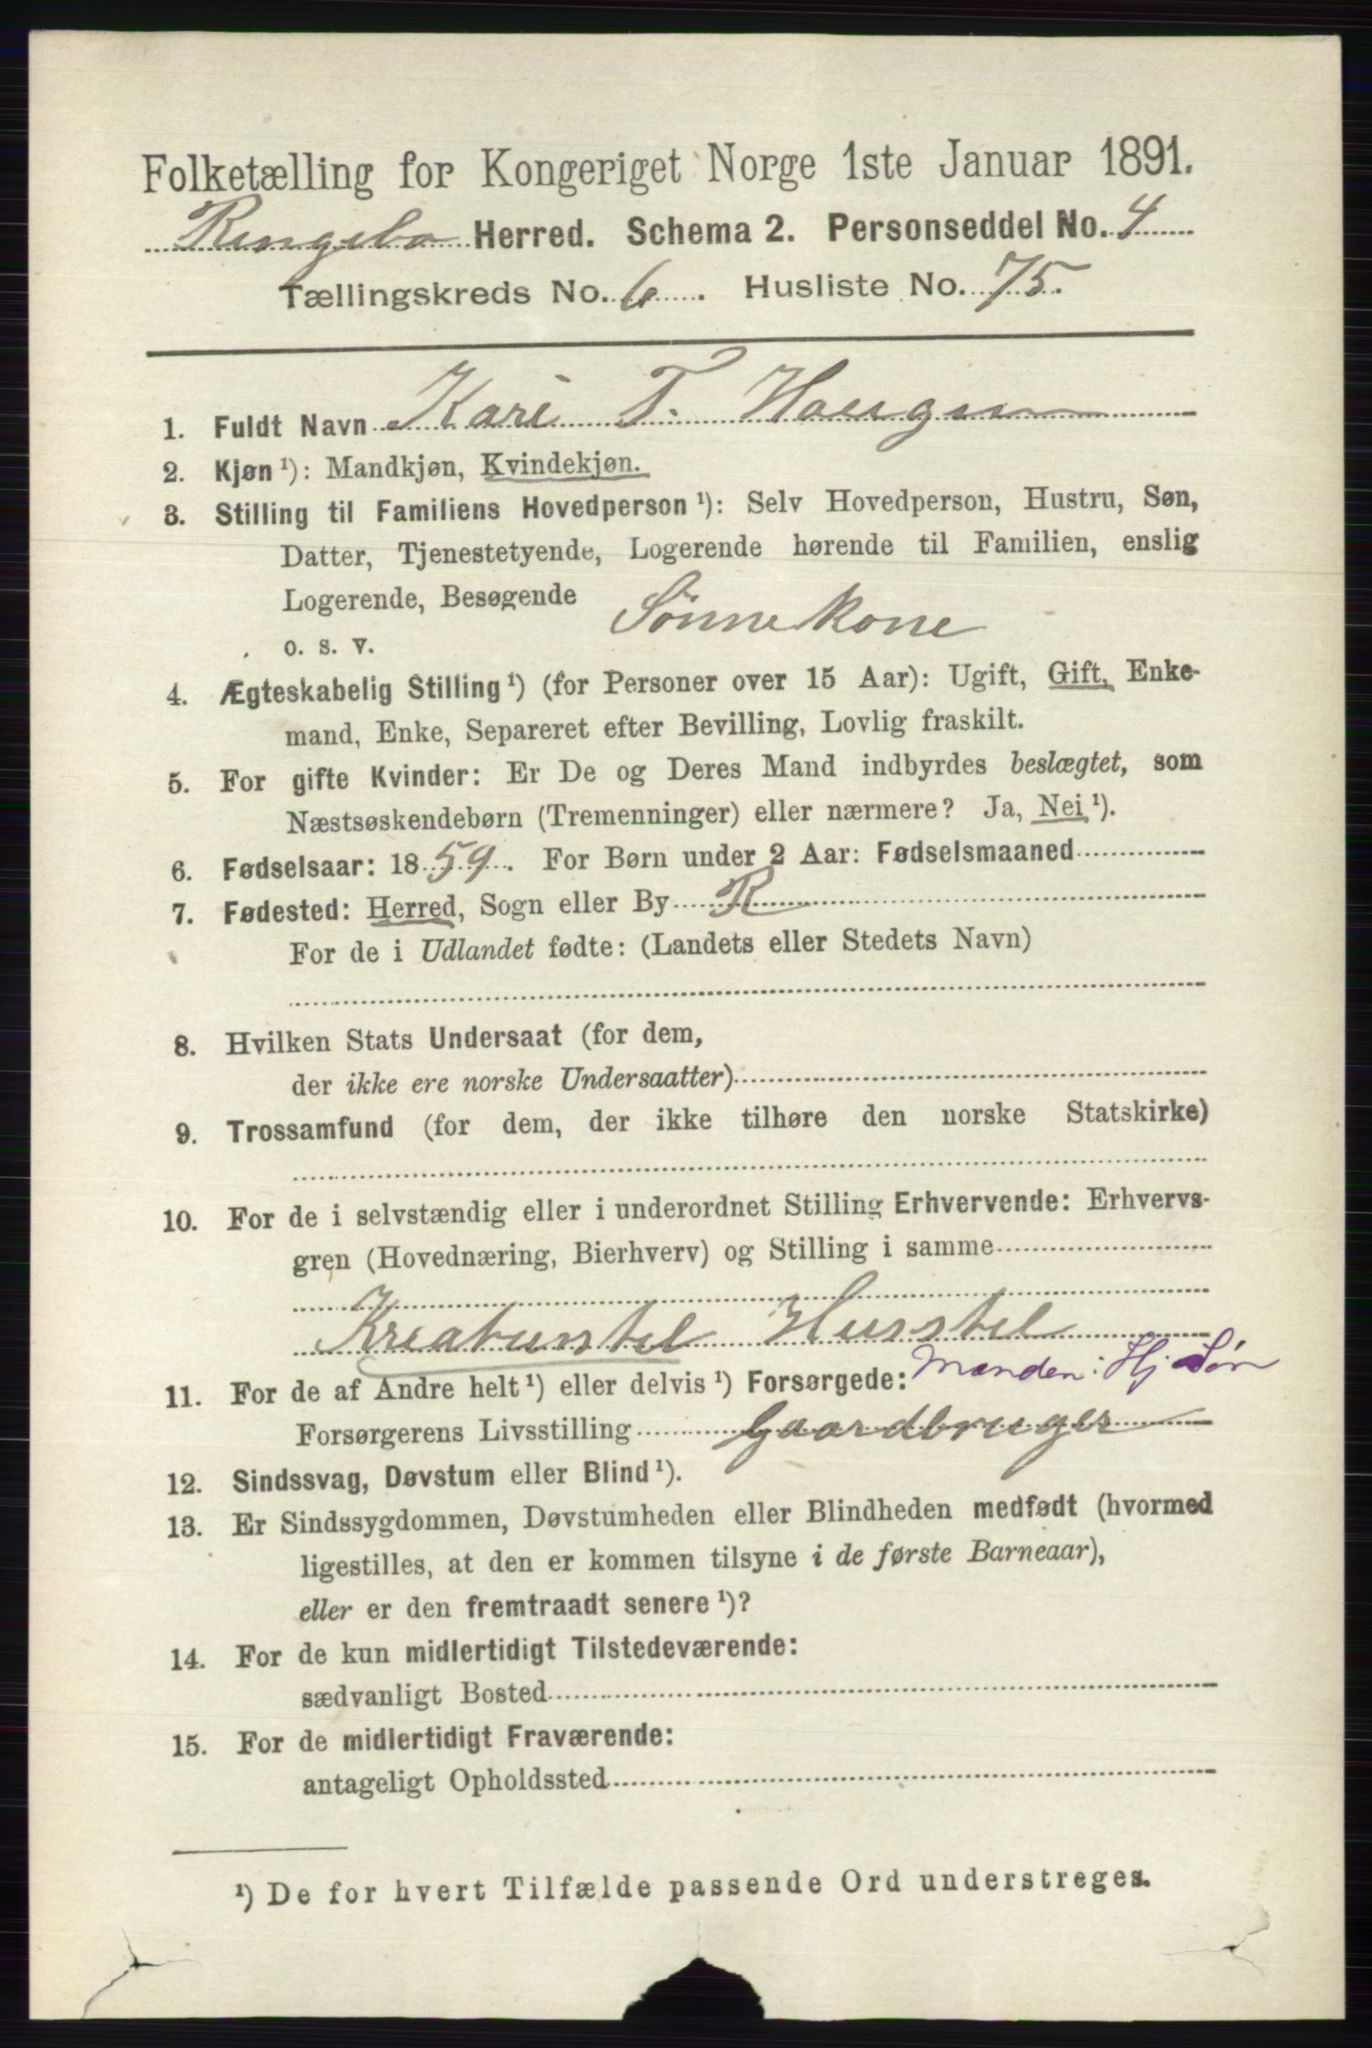 Folketælling for Kongeriget Norge 1ste Januar 1891.
Ringebo Herred. Schema 2. Personseddel No. 4
Tællingskreds No. 6. Husliste No. 75.
1. Fuldt Navn Kari T. Haugen
2. Kjøn ¹): Mandkjøn, Kvindekjøn.
3. Stilling til Familiens Hovedperson ¹): Selv Hovedperson, Hustru, Søn,
Datter, Tjenestetyende, Logerende hørende til Familien, enslig
Logerende, Besøgende
Sønnekone
o. s. v.
4. Ægteskabelig Stilling ¹) (for Personer over 15 Aar): Ugift, Gift, Enke-
mand, Enke, Separeret efter Bevilling, Lovlig fraskilt.
5. For gifte Kvinder: Er De og Deres Mand indbyrdes beslægtet, som
Næstsøskendebørn (Tremenninger) eller nærmere? Ja, Nei ¹).
6. Fødselsaar: 1859. For Børn under 2 Aar: Fødselsmaaned
7. Fødested: Herred, Sogn eller By R
For de i Udlandet fødte: (Landets eller Stedets Navn)
8. Hvilken Stats Undersaat (for dem,
der ikke ere norske Undersaatter)
9. Trossamfund (for dem, der ikke tilhøre den norske Statskirke)
10. For de i selvstændig eller i underordnet Stilling Erhvervende: Erhvervs-
gren (Hovednæring, Bierhverv) og Stilling i samme
Kreaturstel Husstel
11. For de af Andre helt ¹) eller delvis ¹) Forsørgede: Manden: Hj Søn
Forsørgerens Livsstilling Gaardbruger
12. Sindssvag, Døvstum eller Blind ¹).
13. Er Sindssygdommen, Døvstumheden eller Blindheden medfødt (hvormed
ligestilles, at den er kommen tilsyne i de første Barneaar),
eller er den fremtraadt senere ¹)?
14. For de kun midlertidigt Tilstedeværende:
sædvanligt Bosted
15. For de midlertidigt Fraværende:
antageligt Opholdssted
¹) De for hvert Tilfælde passende Ord understreges.